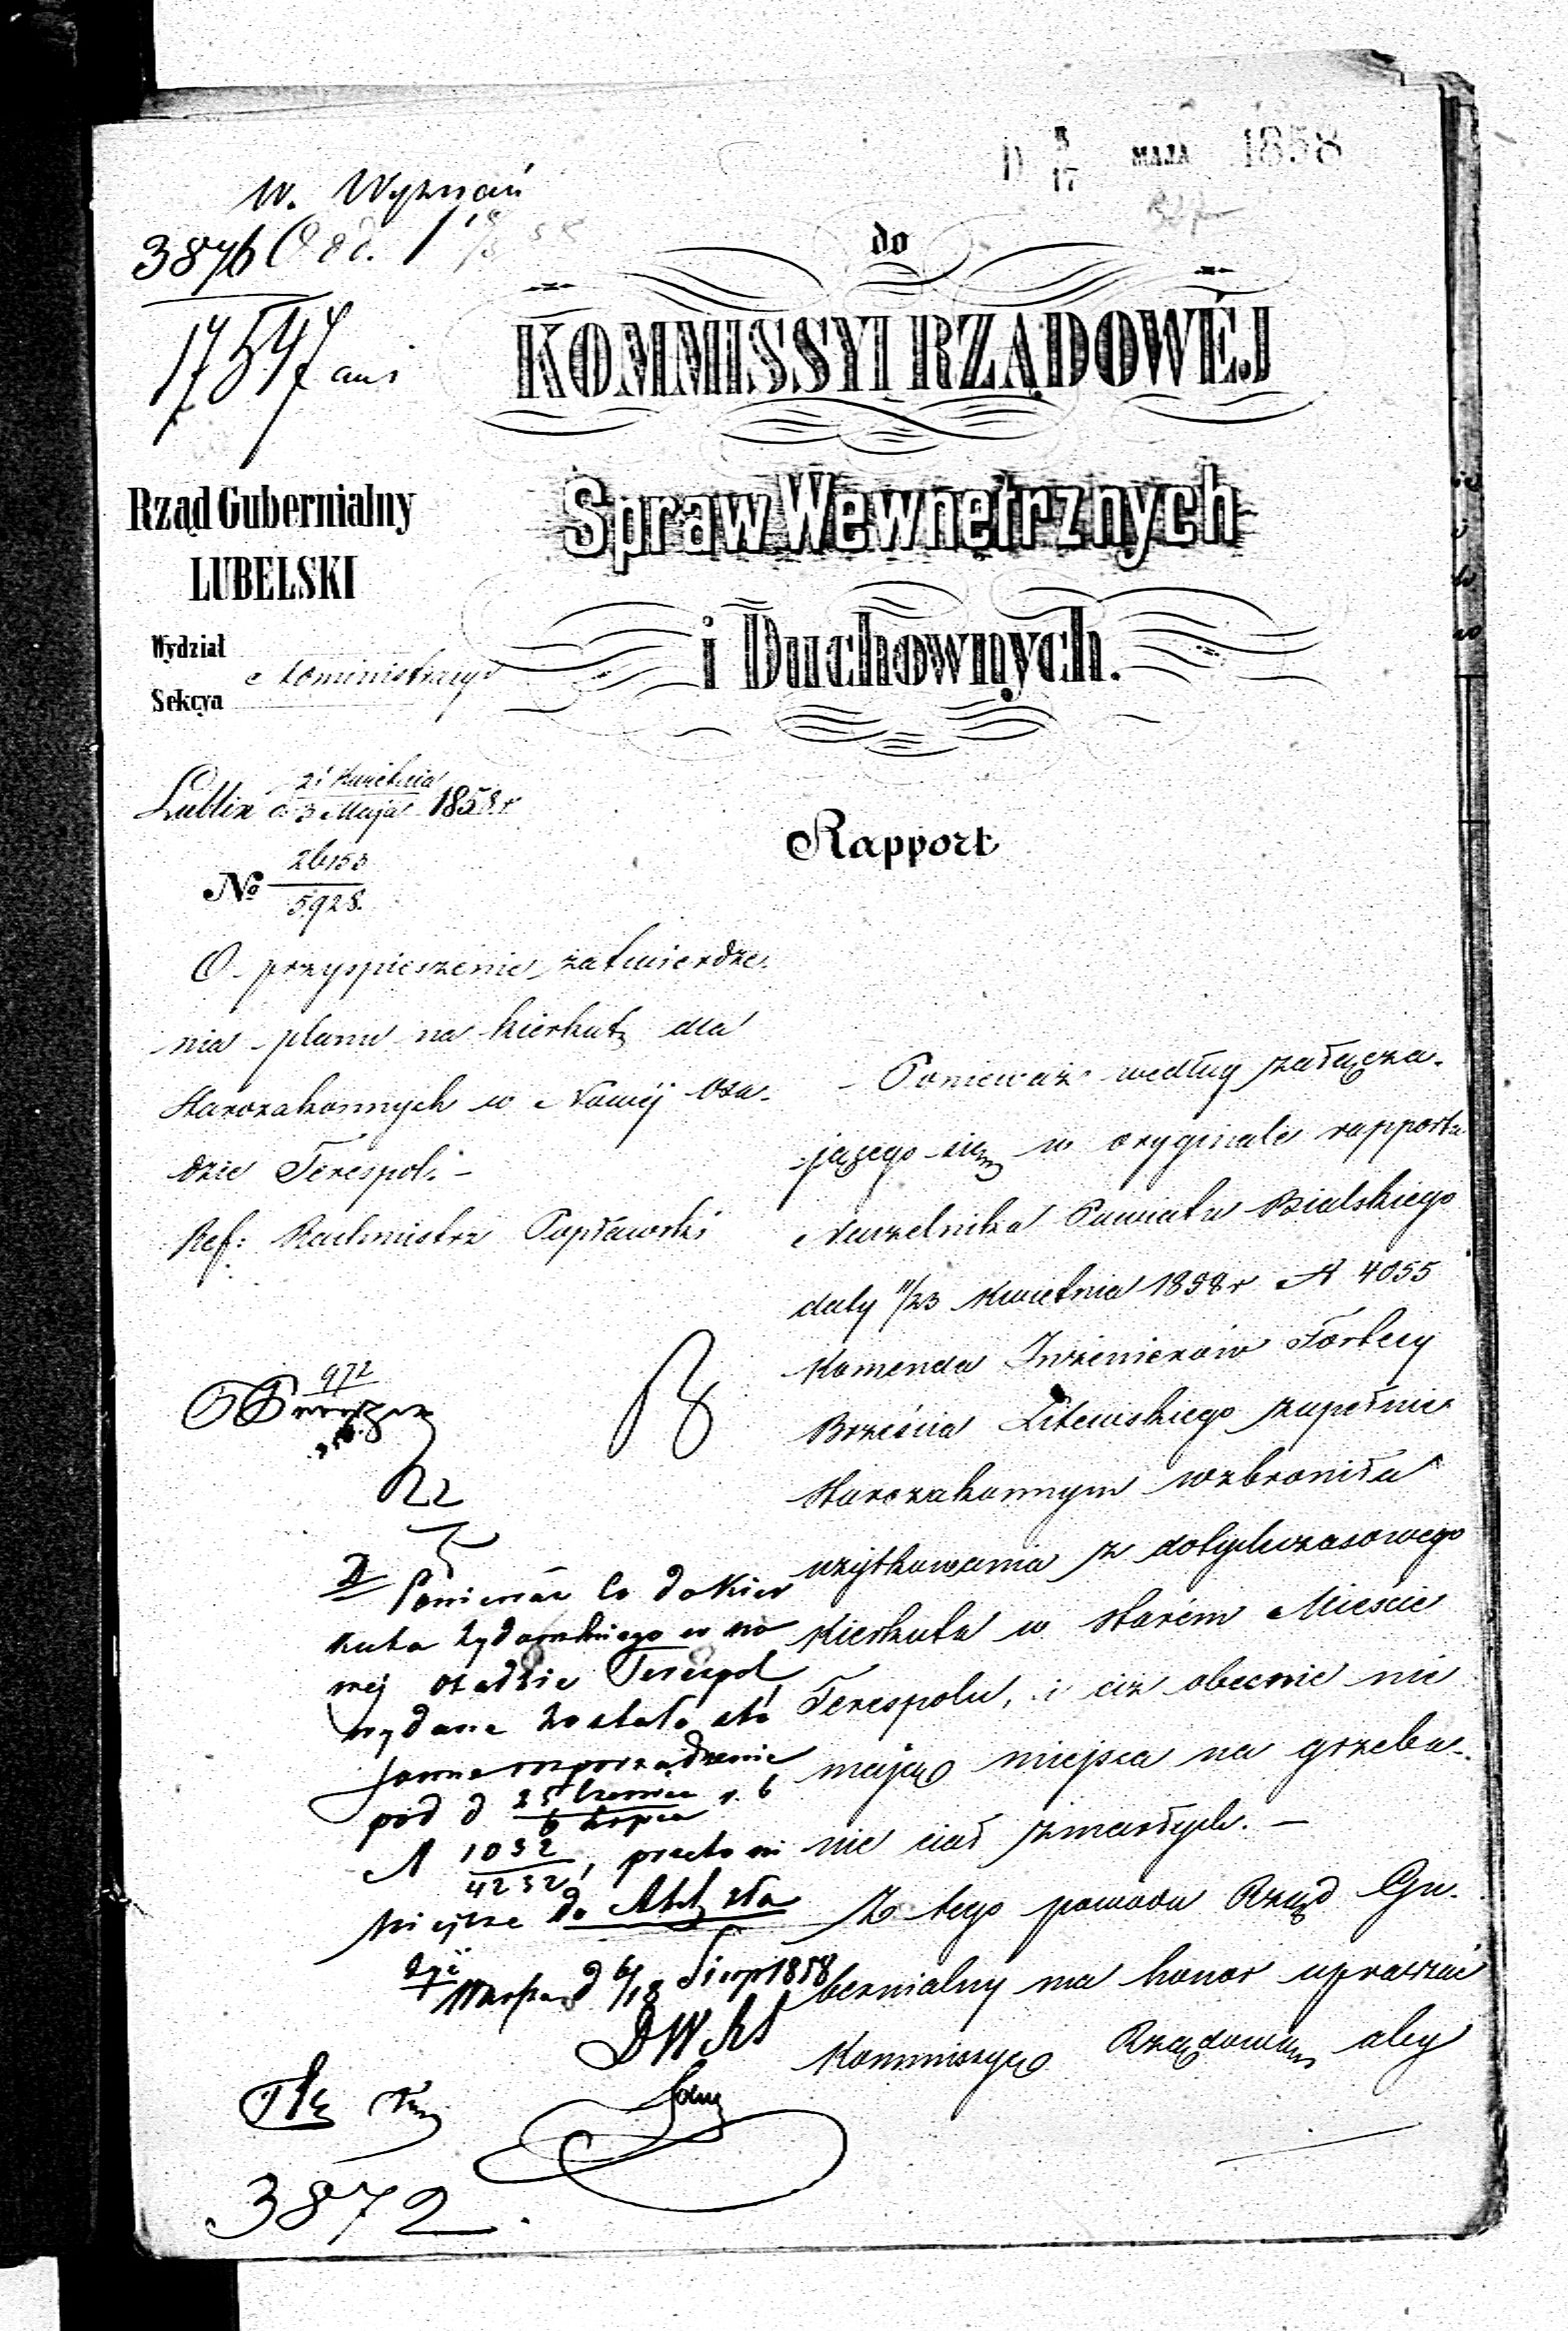 5/17 MAJA 1858
W. Wyznań
3876 Odd. 1
17547
do
KOMMISSYI RZĄDOWÉJ
Spraw Wewnętrznych
i Duchownych.
Rząd Gubernialny
LUBELSKI
Wydział
Administracyi
Sekcya
Lublin d. 21 Kwietnia / 3 Maja 1858 r
Rapport
№ 26153 / 5928.
O przyspieszenie zatwierdze-
nia planu na kierkut dla
Starozakonnych w Nowéj Osa-
dzie Terespol. –
Ref: Radmistrz Popławski
Ponieważ według załącza-
jącego się w oryginale rapportu
Naczelnika Powiatu Bialskiego
daty 11/23 Kwietnia 1858 r N 4055
Komenda Inżenierów Fortecy
Brześcia Litewskiego zupełnie
Starozakonnym wzbroniła
użytkowania z dotychczasowego
Kierkuta w starém Mieście
Terespolu, i ciż obecnie nie
mają miejsca na grzeba-
nie ciał zmarłych. –
Z tego powodu Rząd Gu-
bernialny ma honor upraszać
Kommissyę Rządową aby
972
Ponieważ co do Kier
kuta żydowskiego w no
wej osadzie Terespol,
wydane zostało sto
sowne rozporządzenie
pod d 25 Czerwca / 6 Lipca r. b
N 1032 / 4232, przeto ni
niejsze do Akt zło
żyć
d 6/18 Sierp 1858
3872.